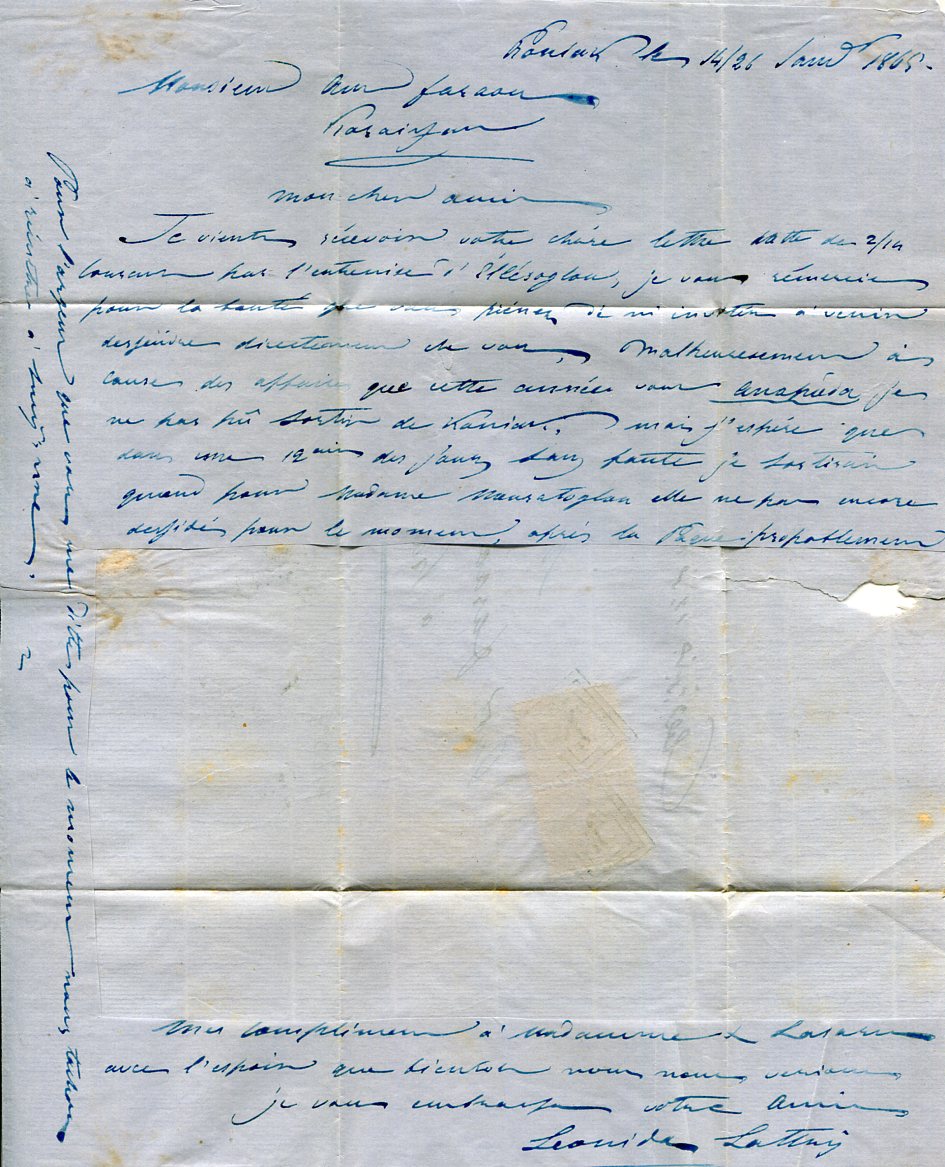 le 14/26 Janv 1865.
Monsieur
mon cher amie
Je vients récevoir votre chère lettre datté de 2/14
courant par l'entremise d' Éllésoglou, je vous rémercie
pour la bonté que vous de m'inviter à venir
directement ché vous, Malheureusement à
cause des affaire que cette année vour anapéda je
ne pas pû sortir de mais j'espére que
dans une 12aine des jours sans faute je sortirai
quand pour Madame elle ne pas encore
desjidé pour le moment, après la propablement
Mes compliment à Madamme
avec l'espoir que bientot nous nous verrions
je vous embrasse votre Amie
Leonida Lattry
Pour l'argent que vous me dittes pour le moment nous tachons
à à